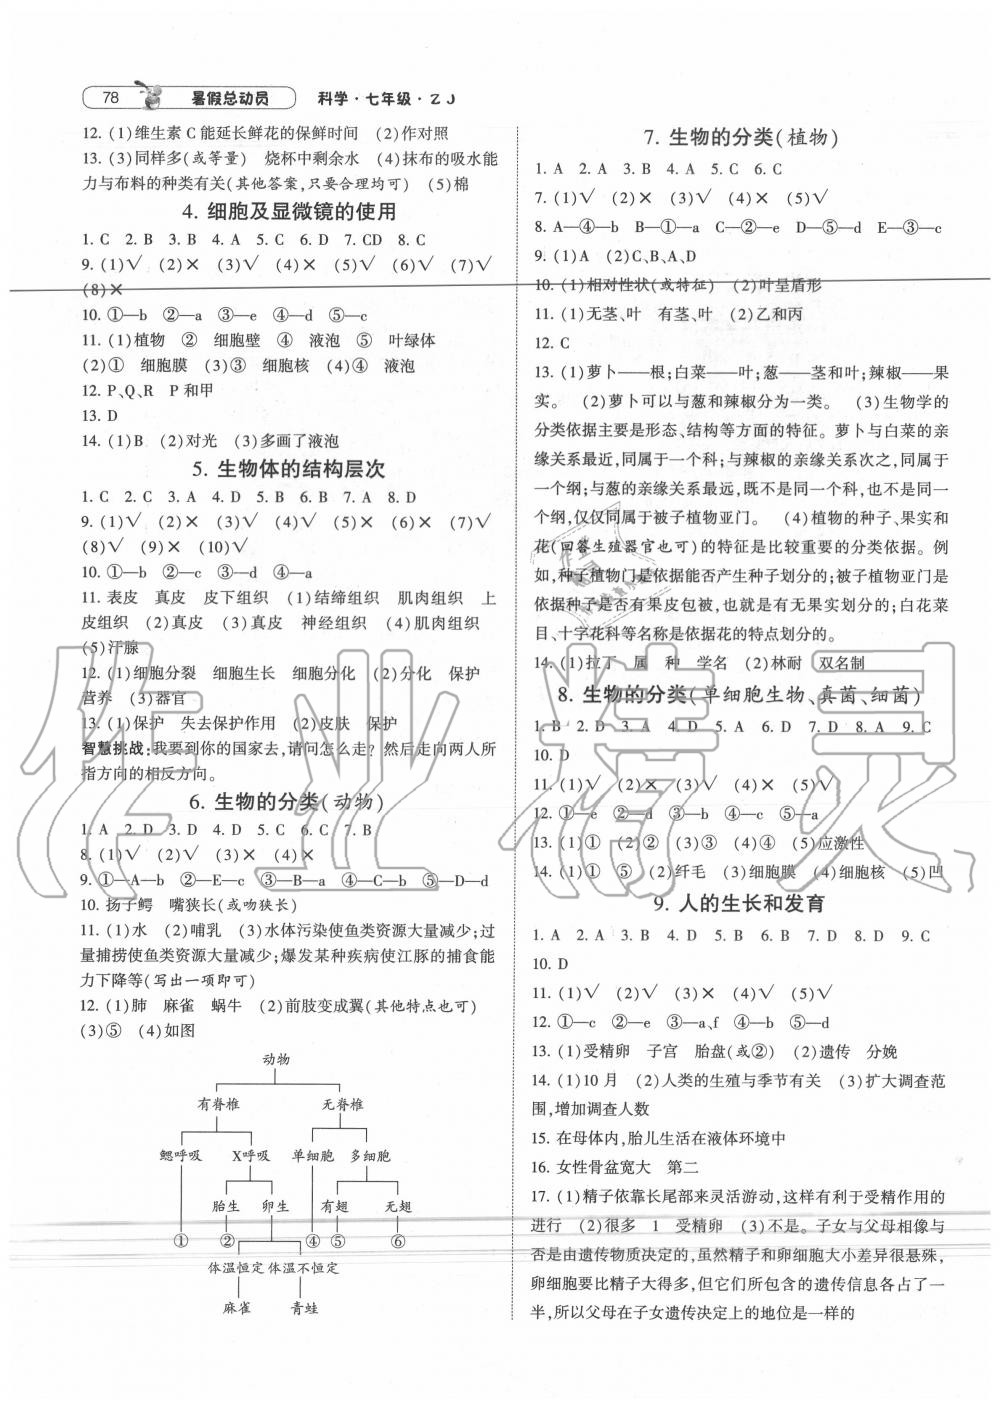 78 暑假总动员 科学·七年级·ZJ
12. (1)维生素C能延长鲜花的保鲜时间 (2)作对照
13. (3)同样多(或等量) 烧杯中剩余水 (4)抹布的吸水能
力与布料的种类有关(其他答案,只要合理均可) (5)棉
4. 细胞及显微镜的使用
1. C 2. B 3. B 4. A 5. C 6. D 7. CD 8. C
9. (1)√ (2)× (3)√ (4)× (5)√ (6)√ (7)√
(8)×
10. ①—b ②—a ③—e ④—d ⑤—c
11. (1)植物 ② 细胞壁 ④ 液泡 ⑤ 叶绿体
(2)① 细胞膜 (3)③ 细胞核 (4)④ 液泡
12. P、Q、R P和甲
13. D
14. (1)B (2)对光 (3)多画了液泡
5. 生物体的结构层次
1. C 2. C 3. A 4. D 5. B 6. B 7. A 8. D
9. (1)√ (2)× (3)√ (4)√ (5)× (6)× (7)√
(8)√ (9)× (10)√
10. ①—b ②—c ③—d ④—a
11. 表皮 真皮 皮下组织 (1)结缔组织 肌肉组织 上
皮组织 (2)真皮 (3)真皮 神经组织 (4)肌肉组织
(5)汗腺
12. (1)细胞分裂 细胞生长 细胞分化 (2)分化 保护
营养 (3)器官
13. (1)保护 失去保护作用 (2)皮肤 保护
智慧挑战:我要到你的国家去,请问怎么走?然后走向两人所
指方向的相反方向。
6. 生物的分类(动物)
1. A 2. D 3. D 4. D 5. C 6. C 7. B
8. (1)√ (2)√ (3)× (4)×
9. ①—A—b ②—E—c ③—B—a ④—C—e ⑤—D—d
10. 扬子鳄 嘴狭长(或吻狭长)
11. (1)水 (2)哺乳 (3)水体污染使鱼类资源大量减少;过
量捕捞使鱼类资源大量减少;爆发某种疾病使江豚的捕食能
力下降等(写出一项即可)
12. (1)肺 麻雀 蜗牛 (2)前肢变成翼(其他特点也可)
(3)⑤ (4)如图
动物
有脊椎 无脊椎
鳃呼吸 X呼吸 单细胞 多细胞
胎生 卵生 有翅 无翅
① ② ④ ⑤ ⑥
体温恒定 体温不恒定
麻雀 青蛙
7. 生物的分类(植物)
1. A 2. A 3. B 4. A 5. C 6. C
7. (1)√ (2)× (3)√ (4)× (5)√
8. A—④—b B—①—a C—②—e D—⑤—d E—③—c
9. (1)A (2)C、B、A、D
10. (1)相对性状(或特征) (2)叶呈盾形
11. (1)无茎、叶 有茎、叶 (2)乙和丙
12. C
13. (1)萝卜——根;白菜——叶;葱——茎和叶;辣椒——果
实。 (2)萝卜可以与葱和辣椒分为一类。 (3)生物学的
分类依据主要是形态、结构等方面的特征。萝卜与白菜的亲
缘关系最近,同属于一个科;与辣椒的亲缘关系次之,同属于
一个纲;与葱的亲缘关系最远,既不是同一个科,也不是同一
个纲,仅仅同属于被子植物亚门。 (4)植物的种子、果实和
花(回答生殖器官也可)的特征是比较重要的分类依据。例
如,种子植物门是依据能否产生种子划分的;被子植物亚门是
依据种子是否有果皮包被,也就是有无果实划分的;白花菜
目、十字花科等名称是依据花的特点划分的。
14. (1)拉丁 属 种 学名 (2)林耐 双名制
8. 生物的分类(单细胞生物、真菌、细菌)
1. B 2. D 3. A 4. D 5. A 6. D 7. D 8. A 9. C
10. D
11. (1)√ (2)× (3)√ (4)× (5)√
12. ①—e ②—d ③—b ④—c ⑤—a
13. (1)① (2)② (3)③ (4)④ (5)应激性
14. (1)① ⑤ (2)纤毛 (3)细胞膜 (4)细胞核 (5)凹
9. 人的生长和发育
1. A 2. A 3. B 4. D 5. C 6. B 7. D 8. D 9. C
10. D
11. (1)√ (2)√ (3)× (4)√ (5)√
12. ①—c ②—e ③—a、f ④—b ⑤—d
13. (1)受精卵 子宫 胎盘(或②) (2)遗传 分娩
14. (1)10月 (2)人类的生殖与季节有关 (3)扩大调查范
围,增加调查人数
15. 在母体内,胎儿生活在液体环境中
16. 女性骨盆宽大 第二
17. (1)精子依靠长尾部来灵活游动,这样有利于受精作用的
进行 (2)很多 1 受精卵 (3)不是。子女与父母相像与
否是由遗传物质决定的,虽然精子和卵细胞大小差异很悬殊,
卵细胞要比精子大得多,但它们所包含的遗传信息各占了一
半,所以父母在子女遗传决定上的地位是一样的
作业精灵